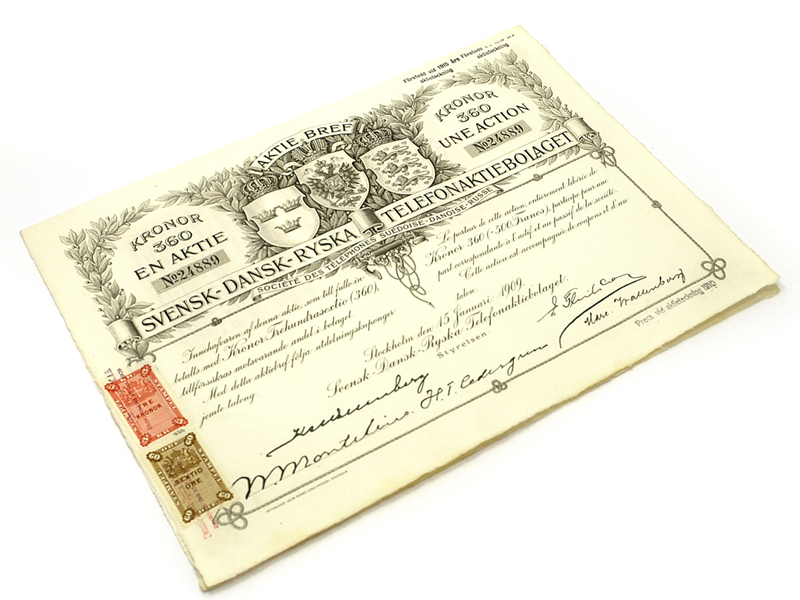 Företedd vid 1915 års
aktieteckning
Företedd
aktieteckning
AKTIE BREF
KRONOR
360
EN AKTIE
No 24889
KRONOR
360
UNE ACTION
No 24889
SVENSK-DANSK-RYSKA TELEFONAKTIEBOLAGET
SOCIÉTÉ DES TÉLÉPHONES SUÉDOISE-DANOISE-RUSSE
Innehafvaren af denna aktie, som till fullo är
betald med Kronor Trehundrasextio (360),
tillförsäkras motsvarande andel i bolaget.
Med detta aktiebref följa utdelningskuponger
jemte talong.
Le porteur de cette action, entièrement libérée de
Kronor 360 (=500 Francs), participe pour une
part correspondante à l'actif et au passif de la société.
Cette action est accompagnée de coupons et d'un
talon.
Stockholm den 15 Januari 1909.
Svensk-Dansk-Ryska Telefonaktiebolaget.
Styrelsen
H. T. Cedergren
Marc. Wallenberg
Pres. vid aktieteckning 1910
TRE
KRONOR
60
SEXTIO
ÖRE
60